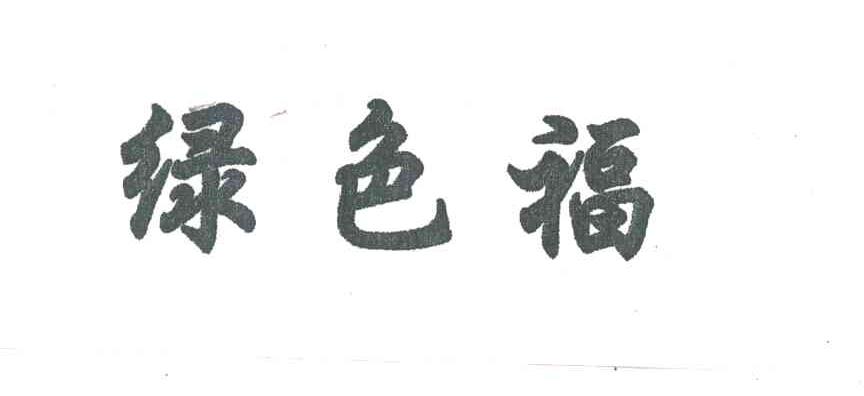 绿色福